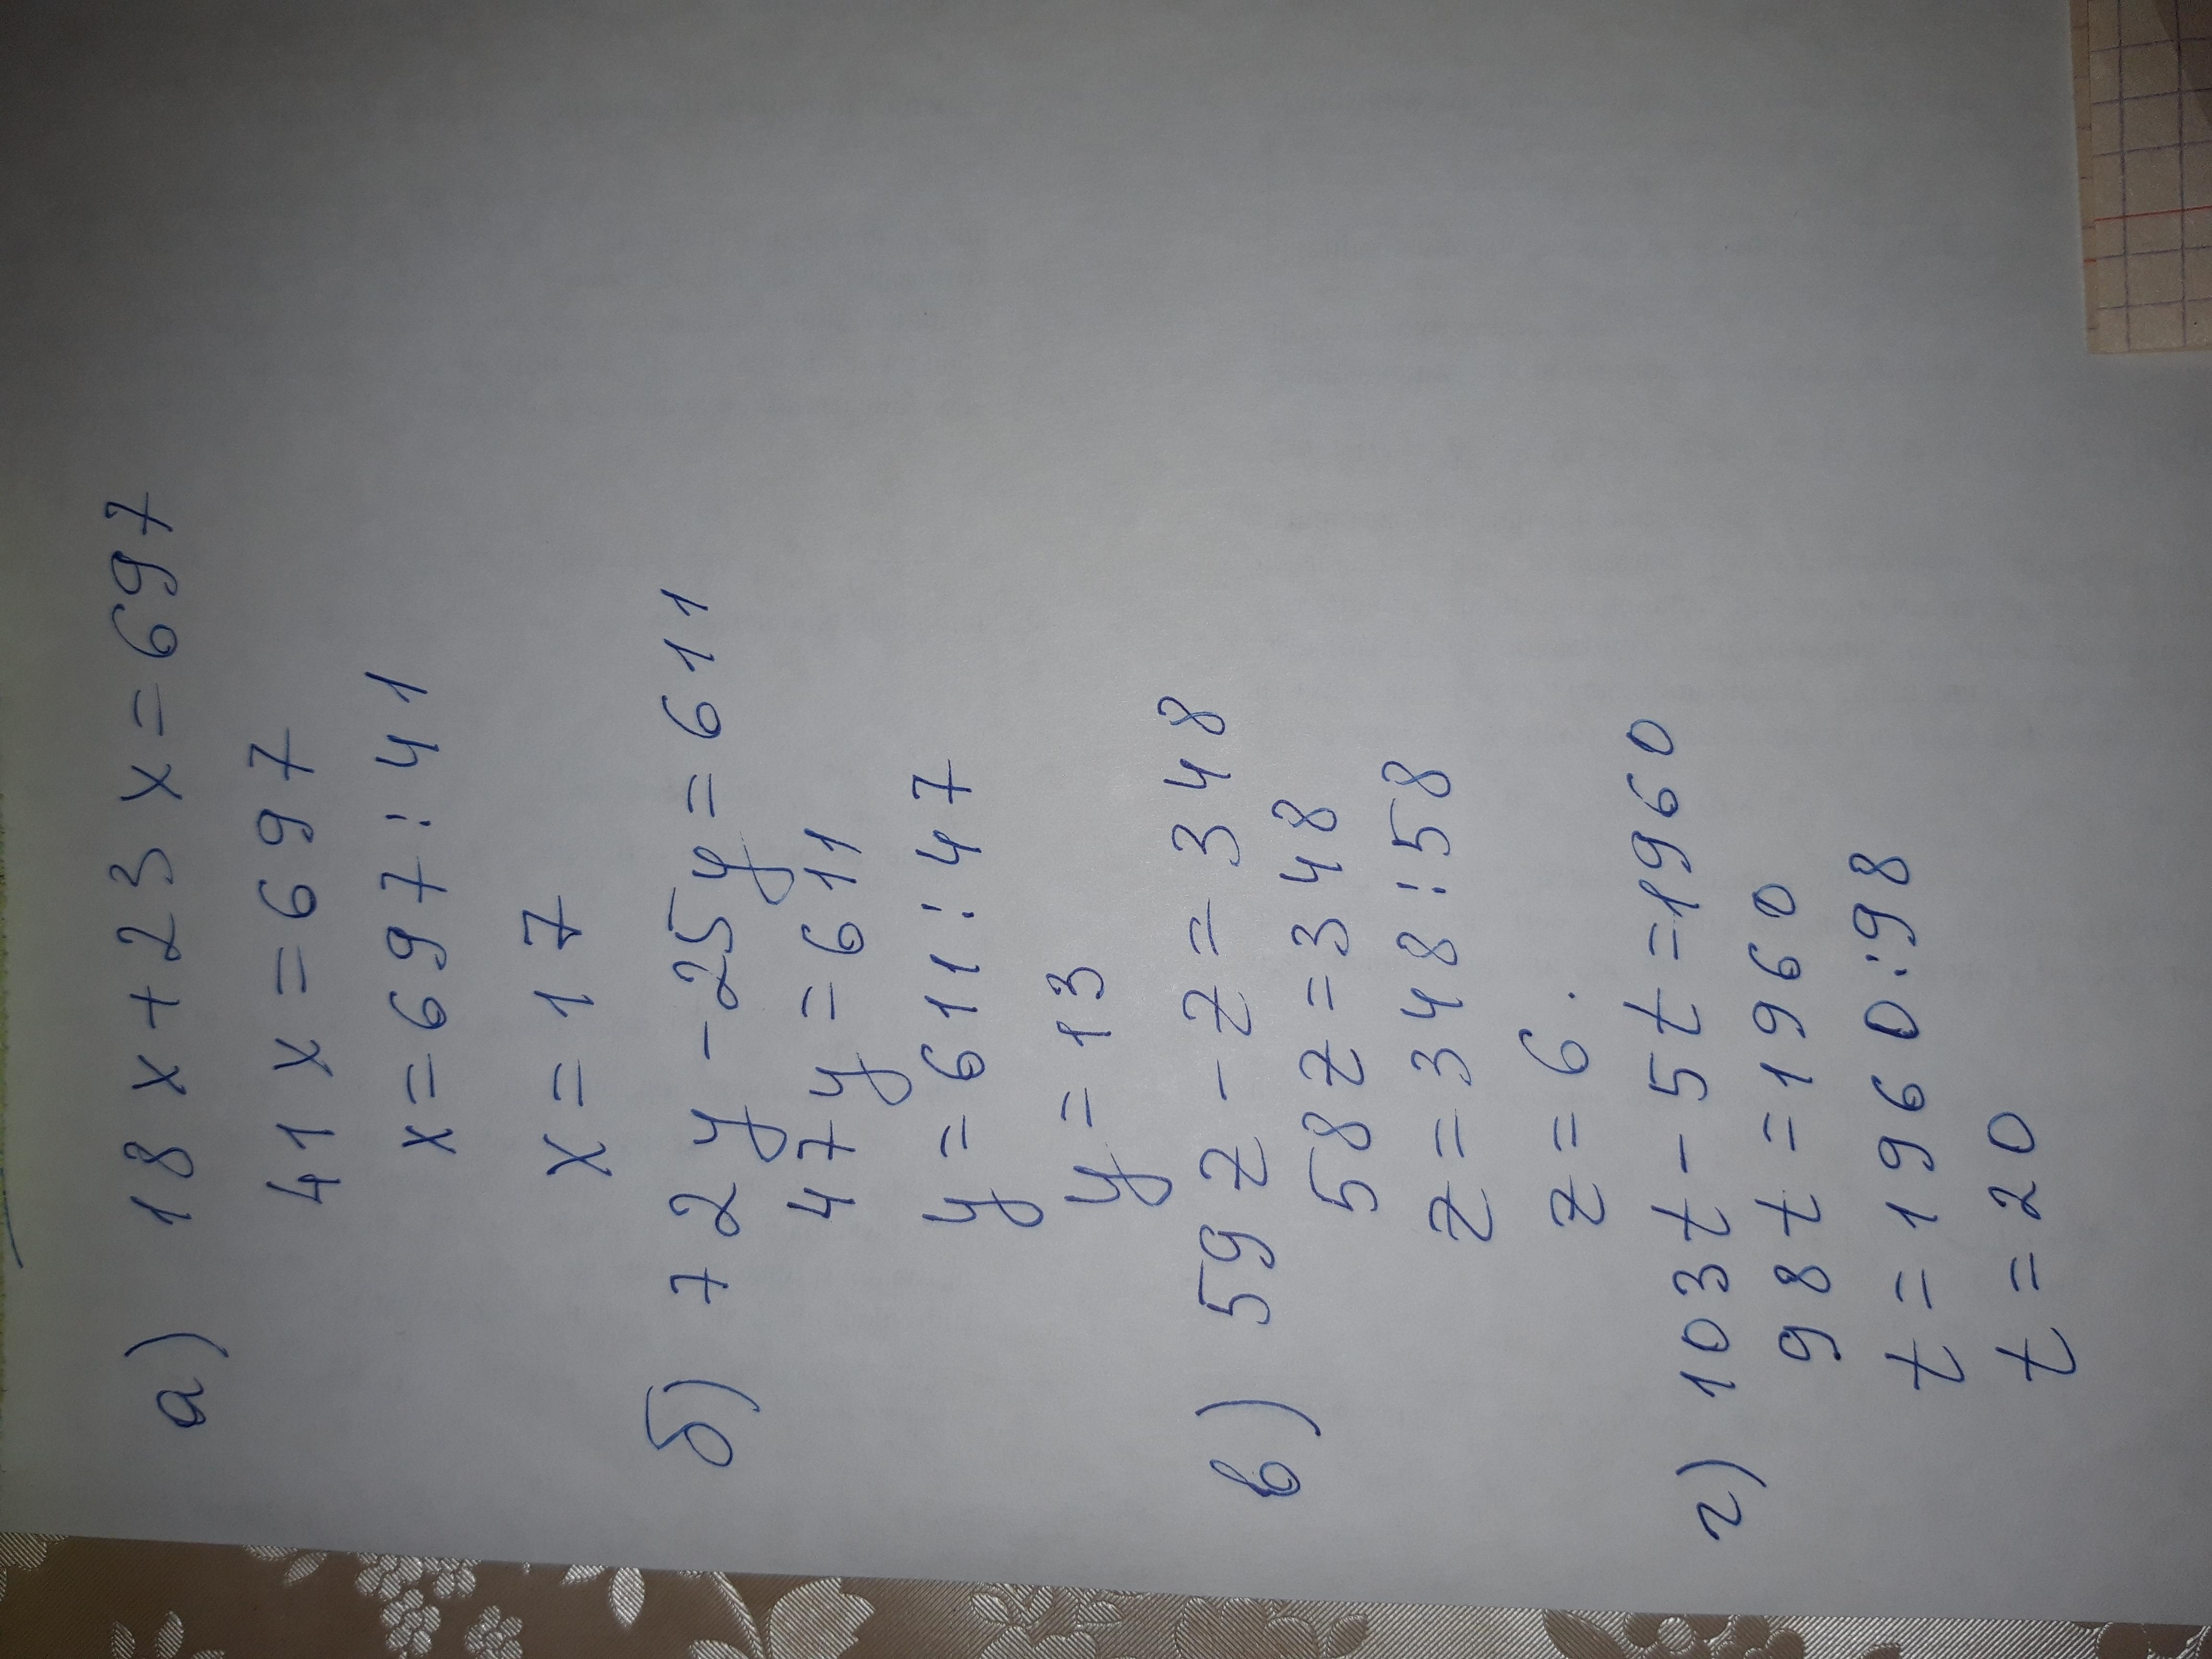 а) 18x+23x=697
41x=697
x=697:41
x=17
б) 72y-25y=611
47y=611
y=611:47
y=13
в) 59z-z=348
58z=348
z=348:58
z=6.
г) 103t-5t=1960
98t=1960
t=1960:98
t=20